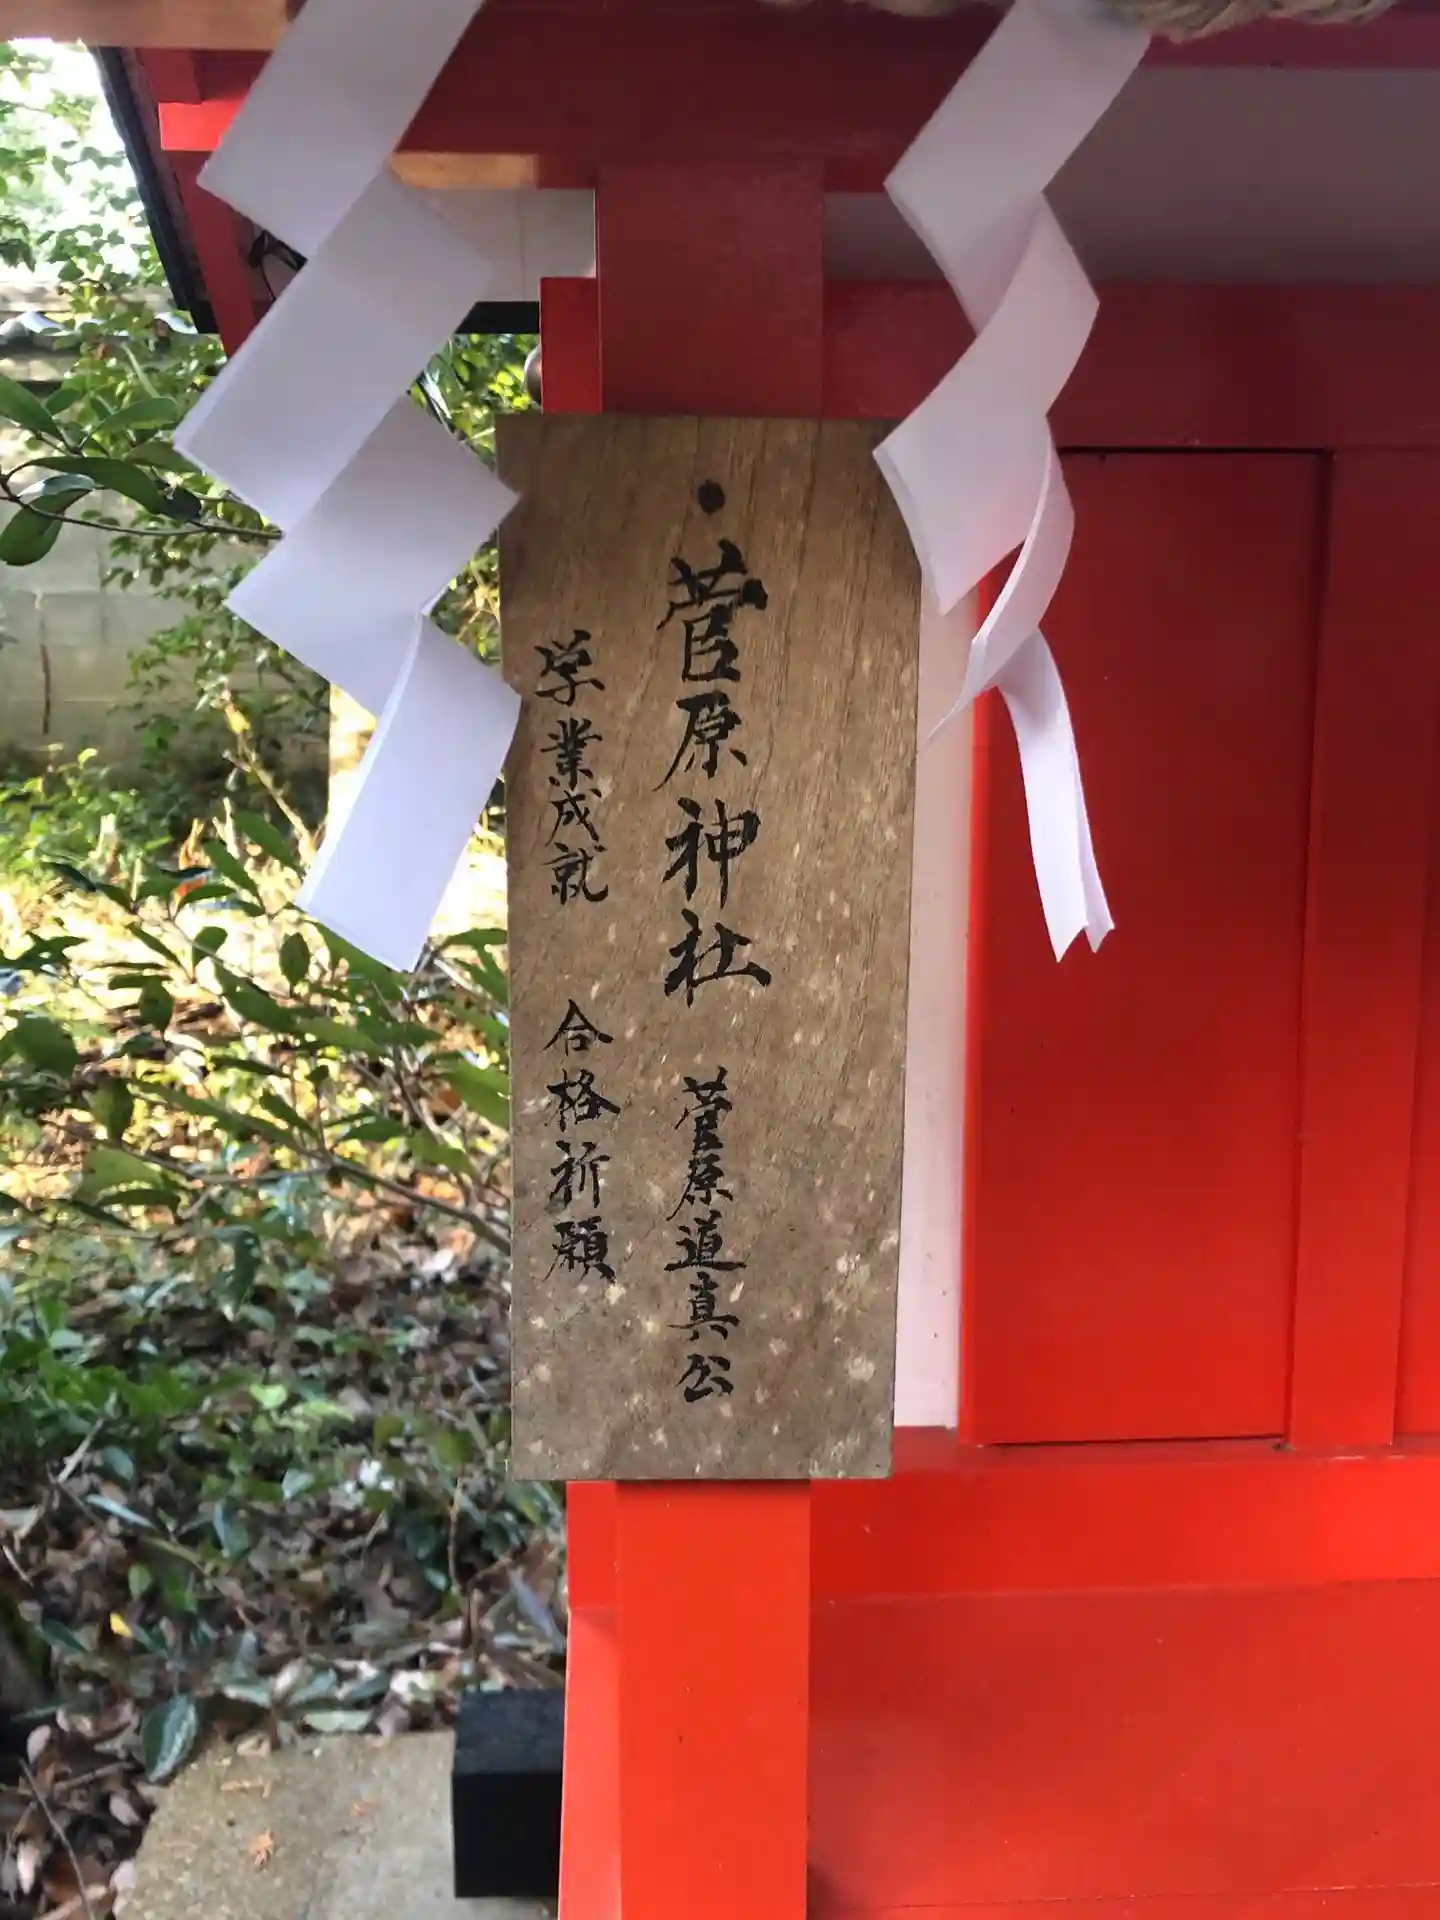 ・菅原神社 菅原道真公
学業成就 合格祈願